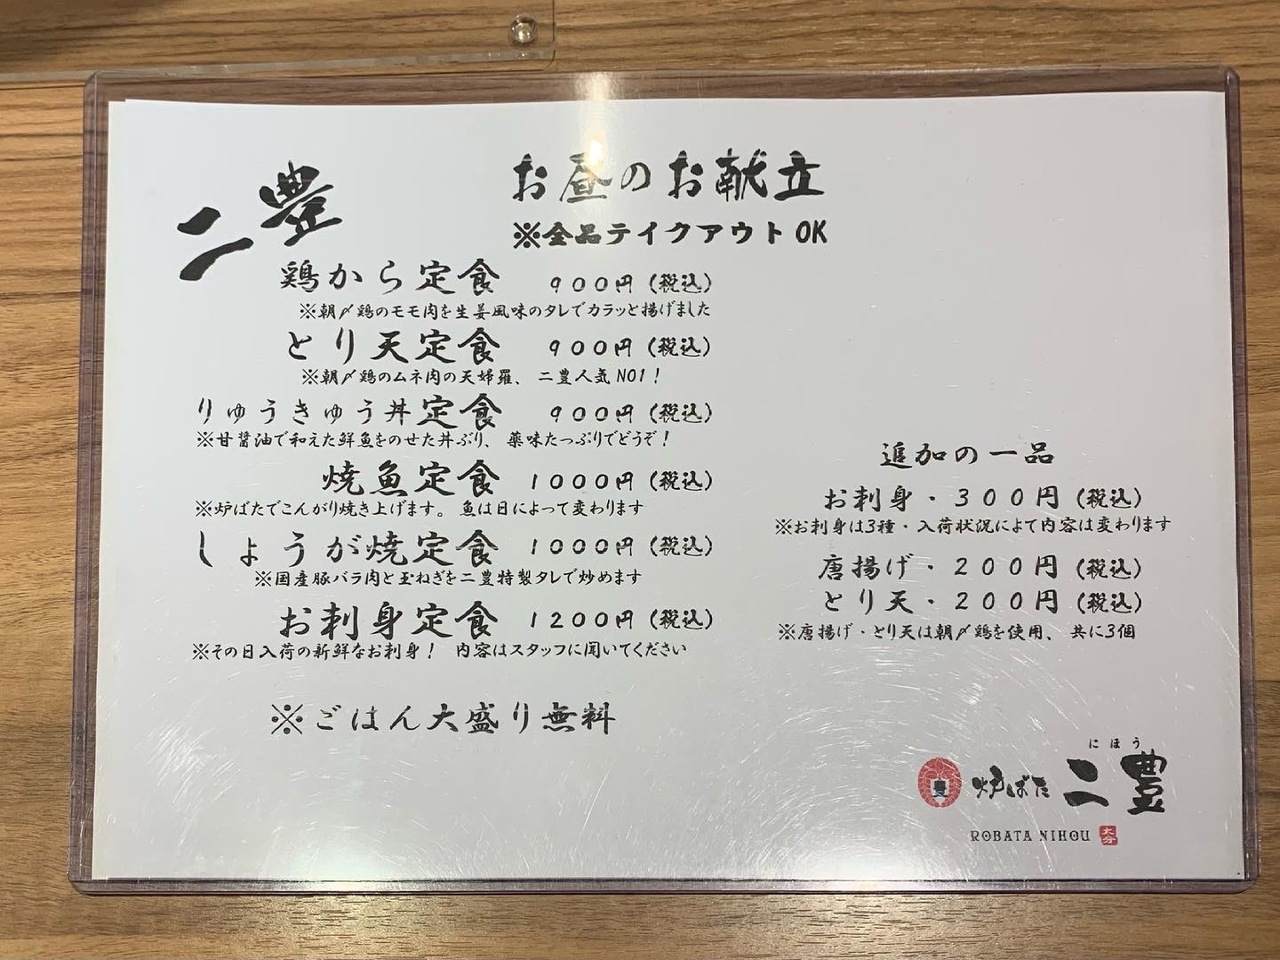 二豊
お昼のお献立
※全品テイクアウトOK
鶏から定食 900円（税込）
※朝〆鶏のモモ肉を生姜風味のタレでカラッと揚げました
とり天定食 900円（税込）
※朝〆鶏のムネ肉の天婦羅、二豊人気NO1！
りゅうきゅう丼定食 900円（税込）
※甘醤油で和えた鮮魚をのせた丼ぶり、薬味たっぷりでどうぞ！
焼魚定食 1000円（税込）
※炉ばたでこんがり焼き上げます。魚は日によって変わります
しょうが焼定食 1000円（税込）
※国産豚バラ肉と玉ねぎを二豊特製タレで炒めます
お刺身定食 1200円（税込）
※その日入荷の新鮮なお刺身！ 内容はスタッフに聞いてください
※ごはん大盛り無料
追加の一品
お刺身・300円（税込）
※お刺身は3種・入荷状況によて内容は変わります
唐揚げ・200円（税込）
とり天・200円（税込）
※唐揚げ・とり天は朝〆鶏を使用、共に3個
にほう
豊 炉ばた 二豊
ROBATA NIHOU 大分